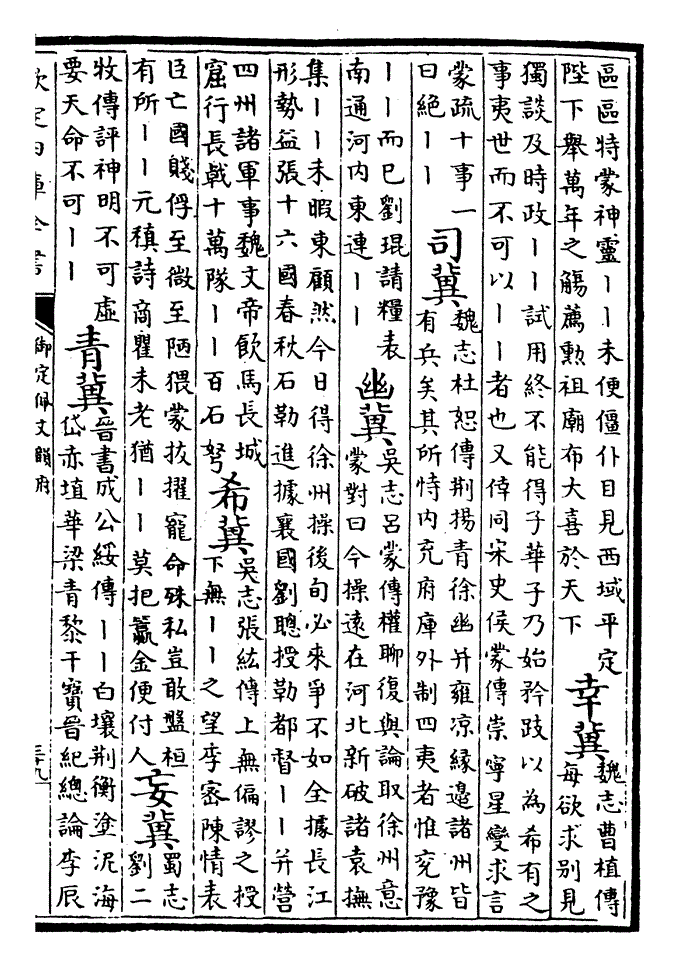 區區特蒙神靈丨丨未便僵仆目見西域平定
陛下舉萬年之觴薦勲祖廟布大喜於天下
幸冀
魏志曹植傳
每欲求別見
獨談及時政丨丨試用終不能得子華子乃始矜跂以為希有之
事夷世而不可以丨丨者也又倖同宋史侯蒙傳崇寧星變求言
蒙疏十事一
曰絶丨丨
司冀
魏志杜恕傳荆揚青徐幽并雍凉緣邉諸州皆
有兵矣其所恃内充府庫外制四夷者惟兖豫
丨丨而已劉琨請糧表
南通河内東連丨丨
幽冀
吳志呂蒙傳權聊復與論取徐州意
蒙對曰今操遠在河北新破諸袁撫
集丨丨未暇東顧然今日得徐州操後旬必來爭不如全據長江
形勢益張十六國春秋石勒進據襄國劉聰授勒都督丨丨并營
四州諸軍事魏文帝飲馬長城
窟行長戟十萬隊丨丨百石弩
希冀
吳志張紘傳上無偏謬之授
下無丨丨之望李密陳情表
臣亡國賤俘至微至陋猥蒙拔擢寵命殊私豈敢盤桓
有所丨丨元稹詩商瞿未老猶丨丨莫把籝金便付人
妄冀
蜀志
劉二
牧傳評神明不可虛
要天命不可丨丨
青冀
晉書成公綏傳丨丨白壤荆衡塗泥海
岱赤埴華梁青黎干寶晉紀總論李辰
欽定四庫全書
御定佩文韻府